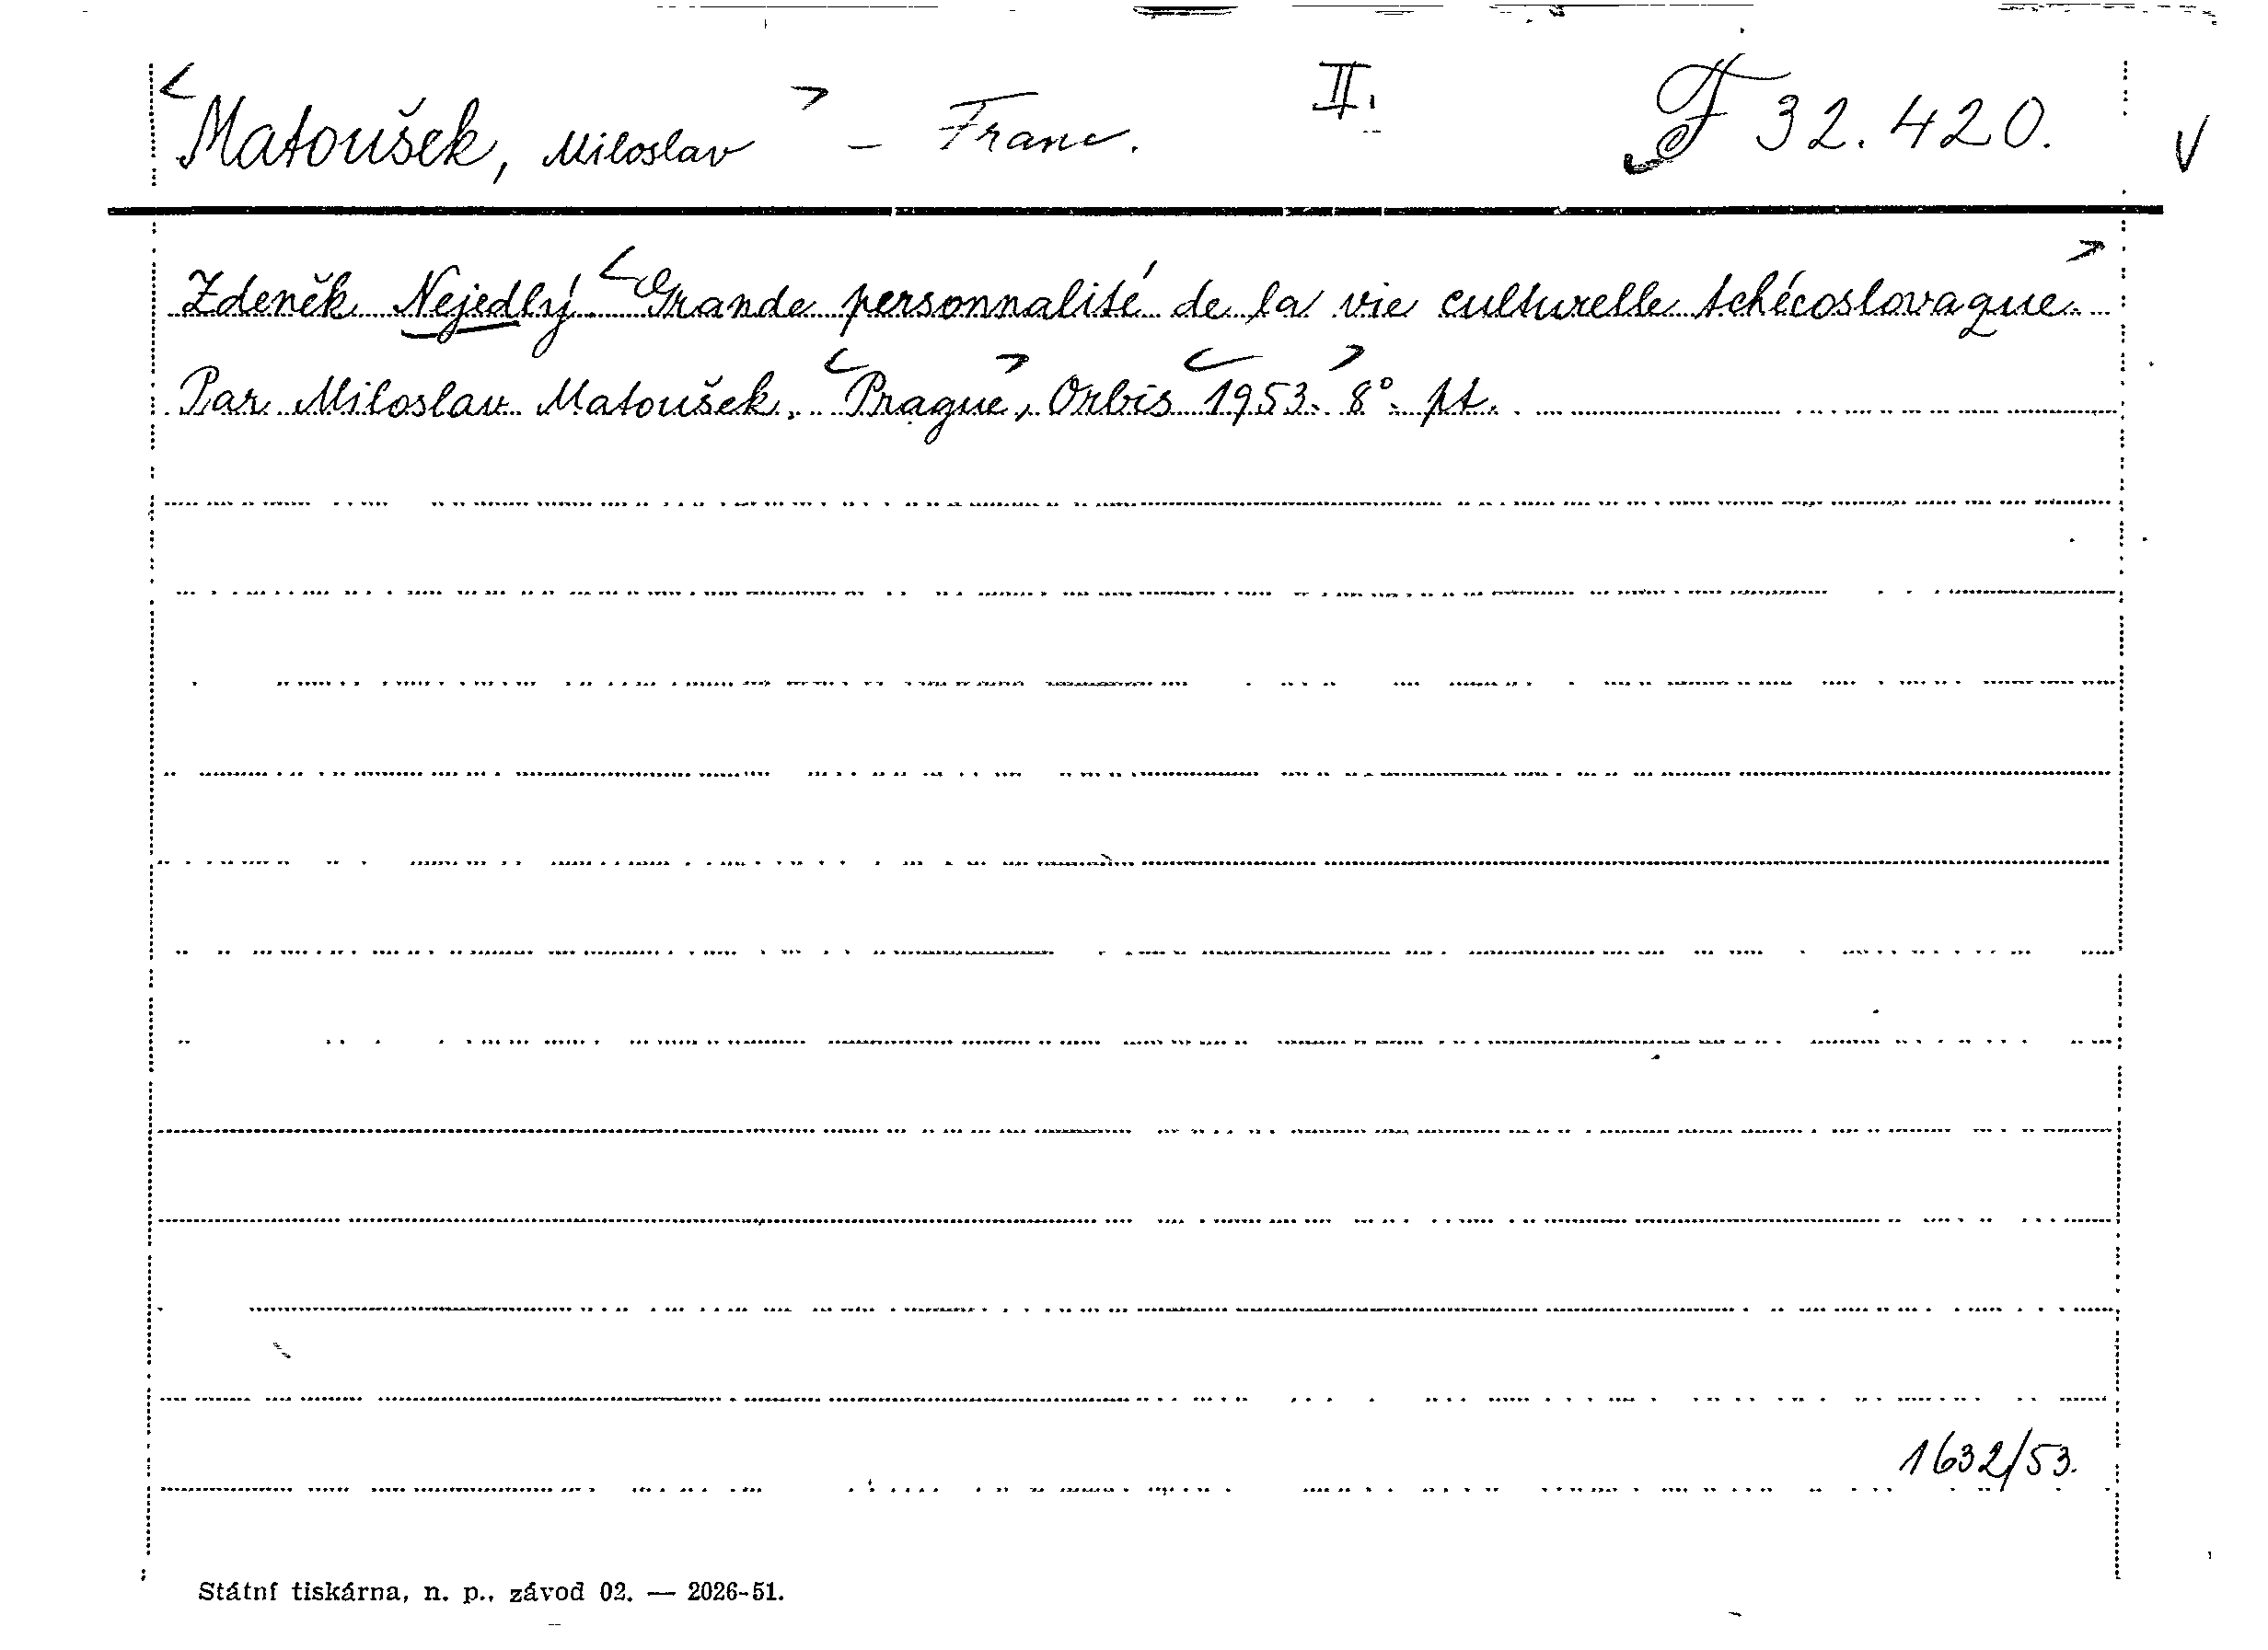 <Matoušek, Miloslav> – Franc. II. F 32.420. V
Zdeněk Nejedlý. <Grande personnalité de la vie culturelle tchécoslovaque.>
Par Miloslav Matoušek. <Prague>, Orbis <1953.> 8°. pt.
1632/53.
Státní tiskárna, n. p., závod 02. — 2026-51.